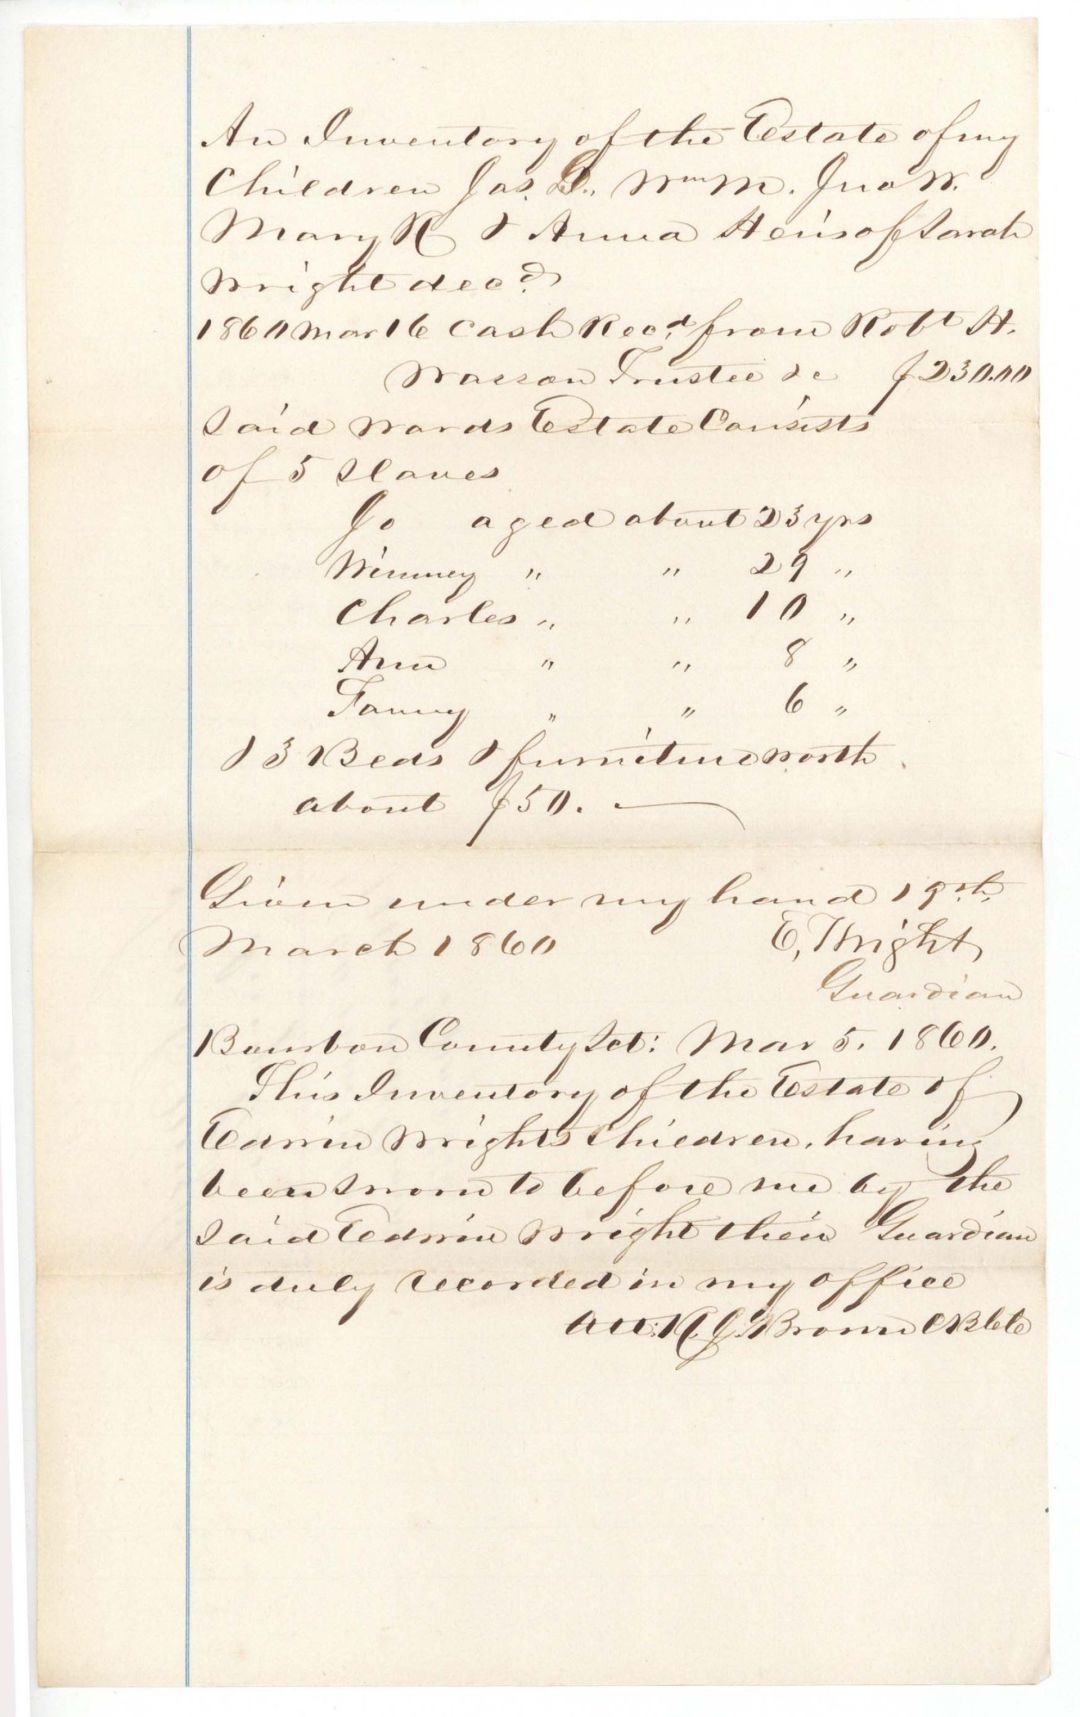 An Inventory of the Estate of my
Children Jas. G., Wm M. Jno W.
Mary R & Anna Heirs of Sarah
Wright decd.
1860 Mar 16 Cash Recd from Robt H.
Wasson Trustee &c $230.00
Said wards Estate Consists
of 5 Slaves
Jo aged about 23 yrs
Winney " " 29 "
Charles " " 10 "
Ann " " 8 "
Fanny " " 6 "
& 3 Beds & furniture worth
about $50.
Given under my hand 19th
March 1860 E, Wright
Guardian
Bourbon County Sct: Mar 5. 1860.
This Inventory of the Estate of
Edwin Wrights Children, having
been sworn to before me by the
said Edwin Wright their Guardian
is duly recorded in my office
Att: R. J. Brown C B C C